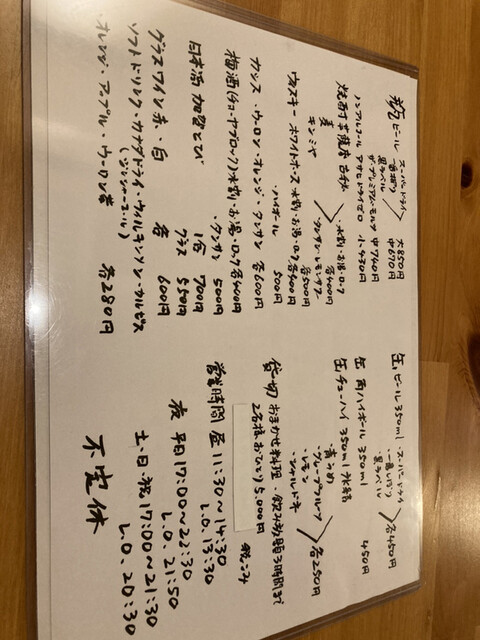 瓶ビール スーパードライ 大850円
一番搾り 中670円
黒ラベル
ザ・プレミアム・モルツ 中740円
ノンアルコール アサヒドライゼロ 小430円
焼酎 芋 薩摩古秘 ・水割・お湯・ロック 各400円
麦 ・タンサン・レモンサワー 各500円
キンミヤ
ウイスキー ホワイトホース 水割・お湯・ロック 各400円
・ハイボール 500円
カシス ・ウーロン・オレンジ・タンサン 各600円
梅酒(チョーヤブロック)水割・お湯・ロック 各400円
・タンサン 500円
日本酒 加賀とび 1合 700円
グラス 550円
グラスワイン 赤・白 各 600円
ソフトドリンク・カナダドライ・ウィルキンソン・カルピス
(ジンジャーエール)
・オレンジ・アップル・ウーロン茶 各280円
缶ビール 350ml ・スーパードライ 各450円
・一番しぼり
・黒ラベル
缶 角ハイボール 350ml 450円
缶チューハイ 350ml 氷結
・青うめ
・グレープフルーツ 各250円
・レモン
・シャルドネ
貸切 おまかせ料理・飲み放題3時間まで
2名様 おひとり5,000円 税こみ
営業時間 昼 11:30〜14:30
L.O. 13:30
夜 平日17:00〜22:30
L.O. 21:50
土・日・祝 17:00〜21:30
L.O. 20:30
不定休